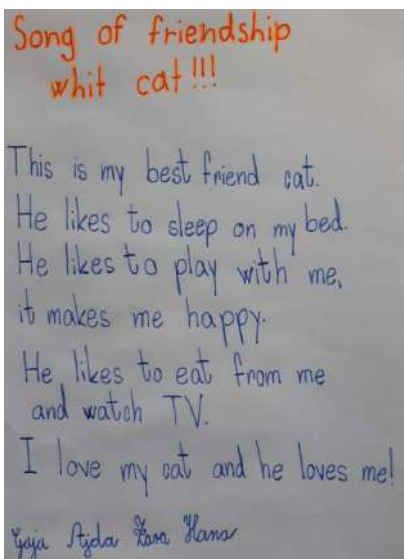 Song of friendship
whit cat!!!
This is my best friend cat.
He likes to sleep on my bed.
He likes to play with me,
it makes me happy.
He likes to eat from me
and watch TV.
I love my cat and he loves me!
Gaja Ajda Zara Hana